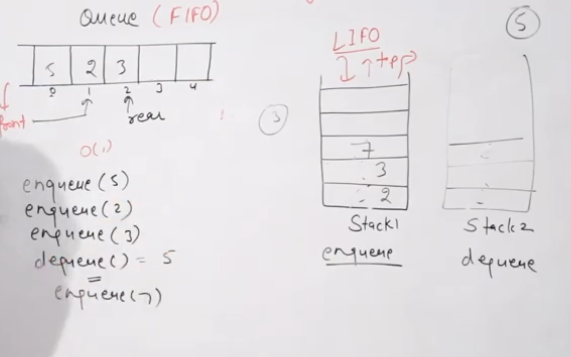 Queue (FIFO)
5 2 3
0 1 2 3 4
front
rear
O(1)
enqueue(5)
enqueue(2)
enqueue(3)
dequeue() = 5
enqueue(7)
3
LIFO
top
7
3
2
Stack1
enqueue
5
Stack2
dequeue